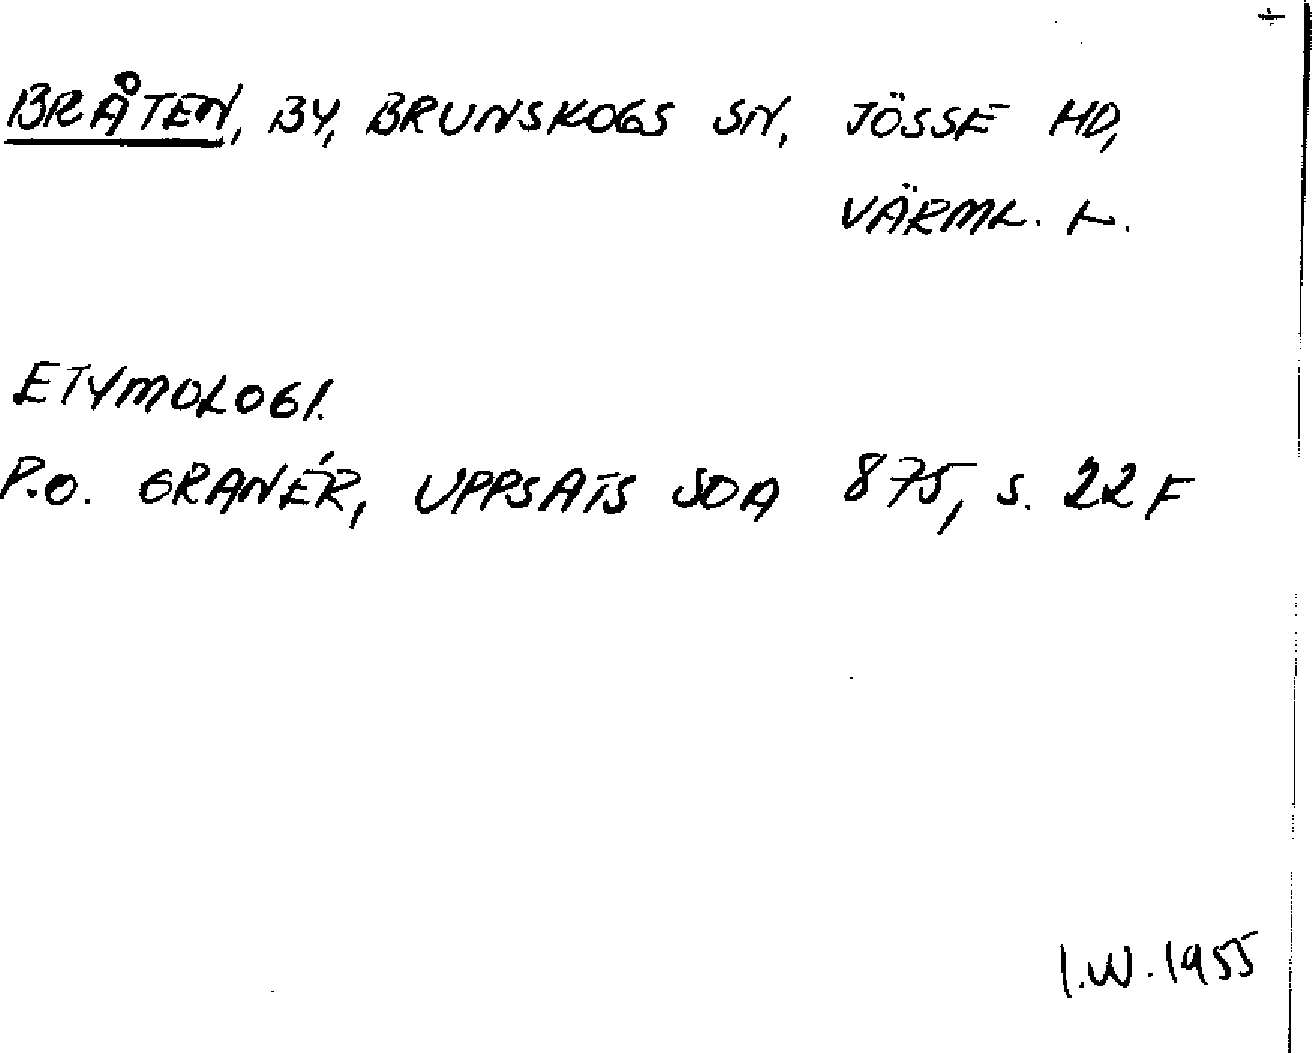 BRÅTEN, BY, BRUNSKOGS SN, JÖSSE HD,
VÄRML. L.
ETYMOLOGI.
P.O. GRANÉR, UPPSATS SDA 875, S. 22 F
I.W. 1955